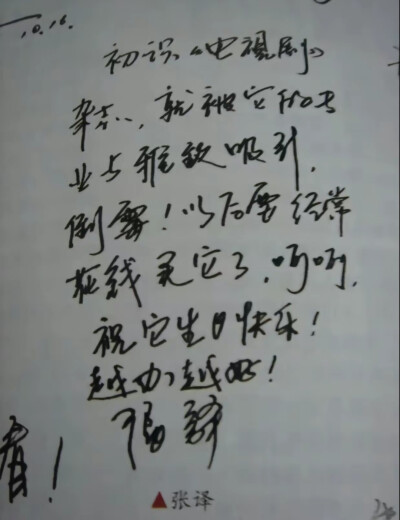 10.16.
初识《电视剧》
杂志，就被它的专
业与雅致吸引，
倒霉！以后要经常
花钱买它了，呵呵，
祝它生日快乐！
越办越好！
张译
看！
▲张译